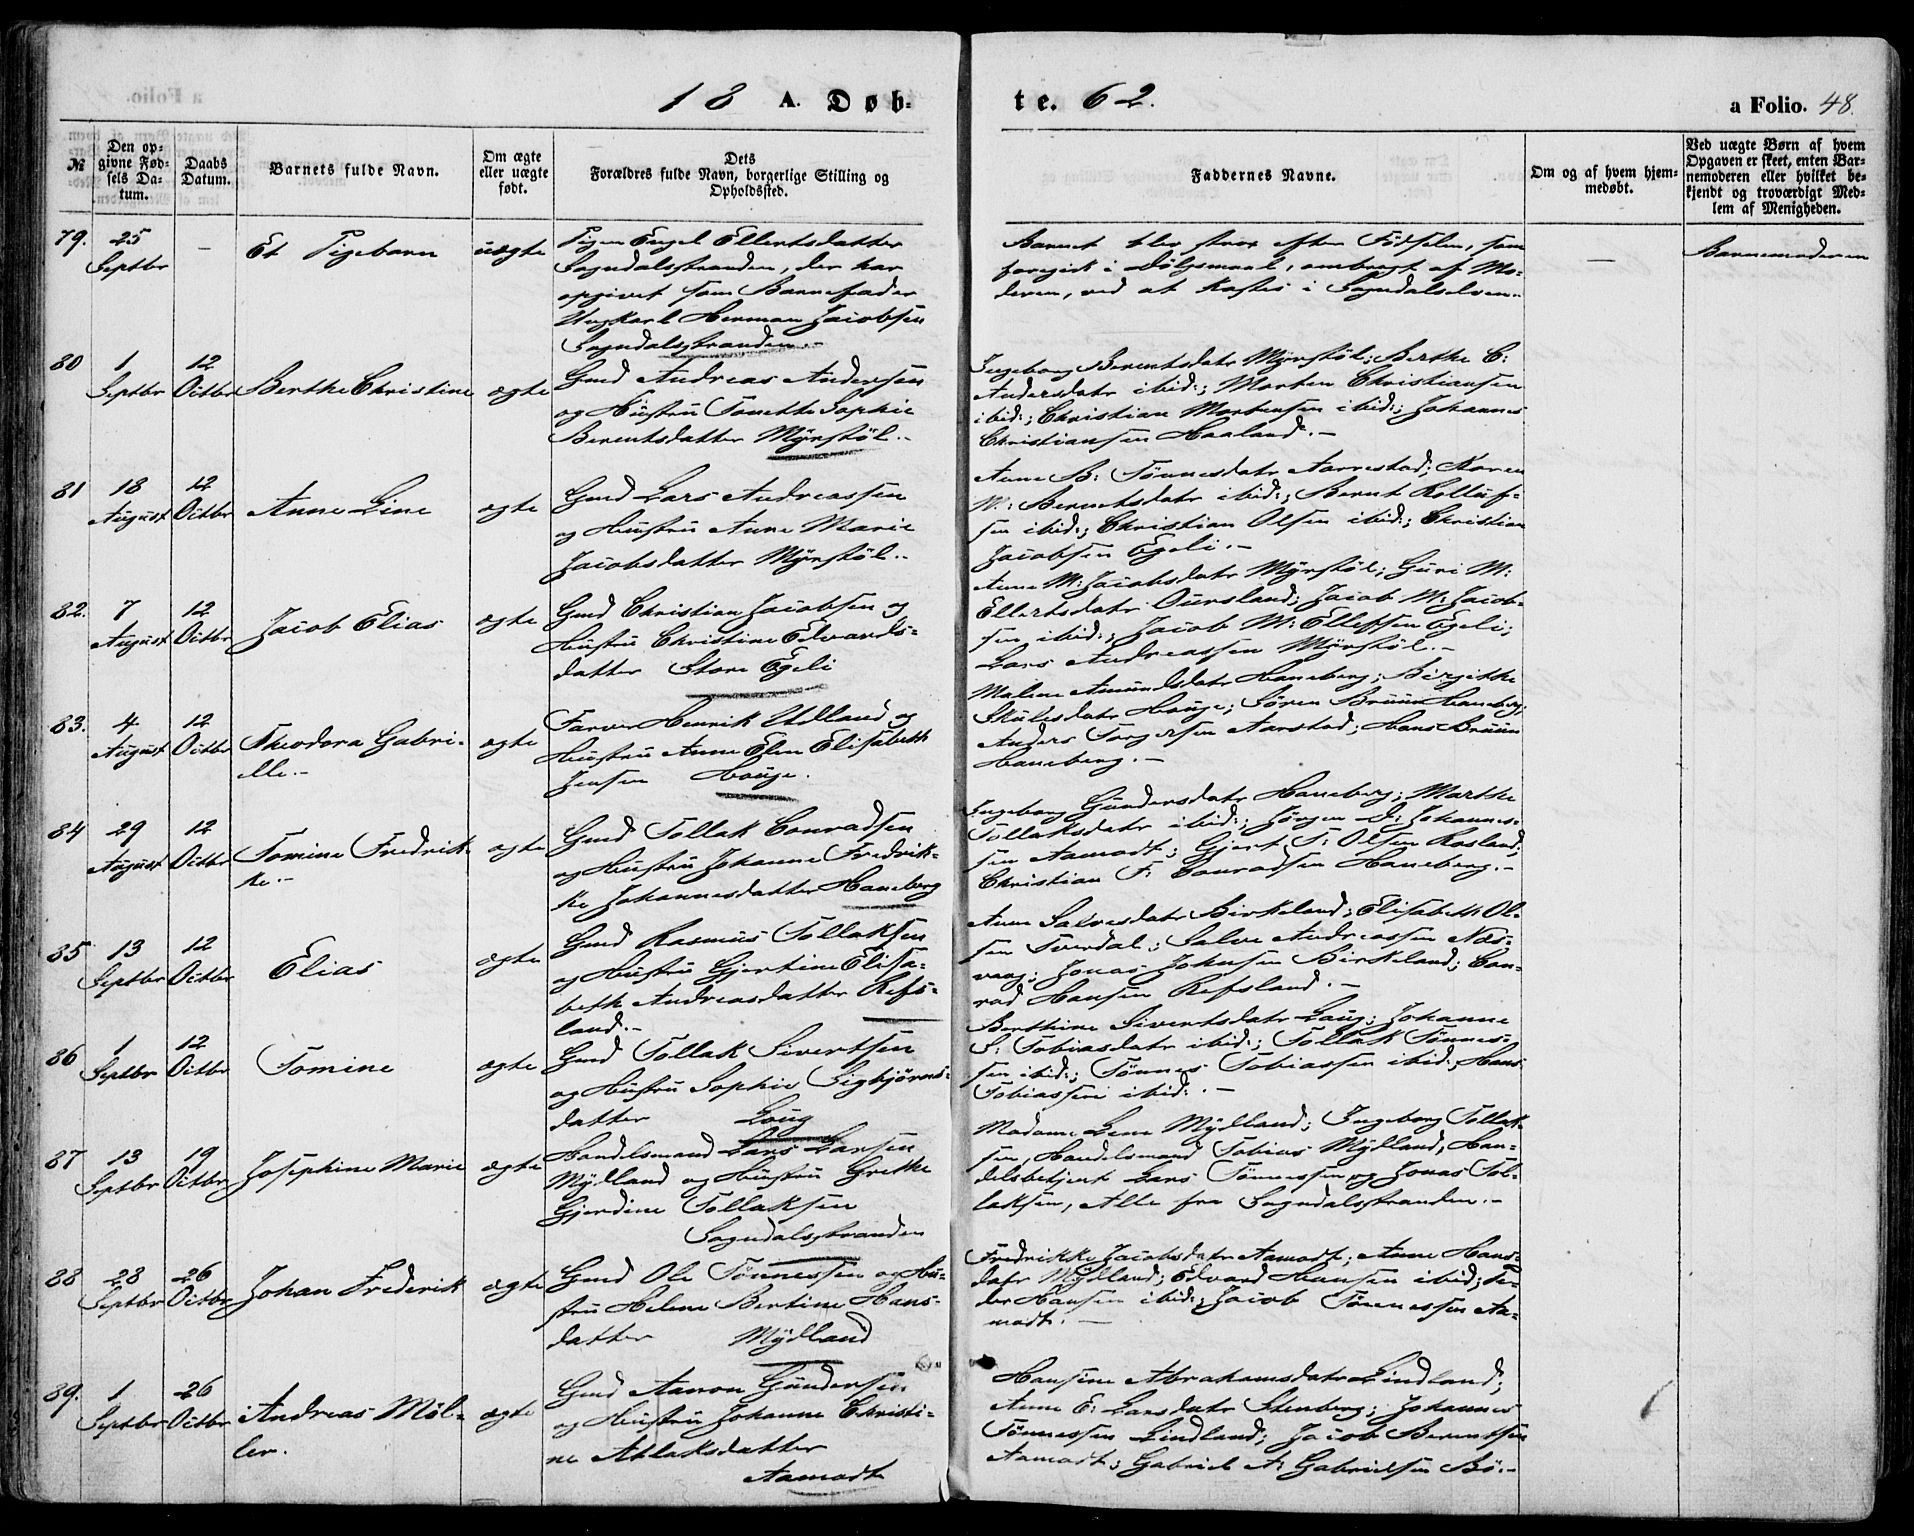 18 A. Døb-
te. 62.
a Folio. 48.
№
Den op-
givne Fød-
sels Da-
tum.
Daabs
Datum.
Barnets fulde Navn.
Om ægte
eller uægte
født.
Dets
Forældres fulde Navn, borgerlige Stilling og
Opholdssted.
Faddernes Navne.
Om og af hvem hjem-
medøbt.
Ved uægte Børn af hvem
Opgaven er skeet, enten Bar-
nemoderen eller hvilket be-
kjendt og troværdigt Med-
lem af Menigheden.
79.
25
Septbr
—
Et Pigebarn
uægte
Pigen Engel Ellertsdatter
Sogndalsstranden, der har
opgivet som Barnefader
Ungkarl Herman Jacobsen
Sogndalsstranden.-
Barnet blev strax efter Fødselen, som
foregik i Dølgsmaal, ombragt af Mo-
deren, ved at kastes i Sogndalselven.-
—
Barnemoderen
80
1
Septbr
12
Octbr
Berthe Christine
ægte
Gmd Andreas Andersen
og Hustru Tonette Sophie
Berentsdatter Myrstøl.-
Ingeborg Berentsdatr Myrstøl; Berthe C:
Andersdatr ibid:; Morten Christiansen
ibid:; Christian Mortensen ibid:; Johannes
Christiansen Haaland.-
81
18
August
12
Octbr
Anne Line
ægte
Gmd Lars Andreassen
og Hustru Anne Marie
Jacobsdatter Myrstøl.-
Anne B: Tønnesdatr Aarrestad; Karen
M: Berentsdatr ibid:; Bernt Rolluf-
sen ibid:; Christian Olsen ibid:; Christian
Jacobsen Egeli.-
82.
7
August
12
Octbr
Jacob Elias
ægte
Gmd Christian Jacobsen og
Hustru Christine Edvards-
datter Store Egeli
Anne M: Jacobsdatr Myrstøl; Guri M:
Ellertsdatr Oursland; Jacob M: Jacob-
sen ibid:; Jacob M: Elleffsen Egeli;
Lars Andreassen Myrstøl.-
83.
4
August
12
Octbr
Theodora Gabri-
elle.-
ægte
Farver Henrik Udland og
Hustru Anne Elen Elisabeth
Jensen Houge.
Malene Amundsdatr Haneberg; Birgitte
Skulesdatr Houge; Søren Bruun Haneberg;
Anders Torgersen Aarstad; Hans Bruun
Haneberg.-
84
29
August
12
Octbr
Tomine Fredrik-
ke.-
ægte
Gmd Tollak Conradsen
og Hustru Johanne Fredrik-
ke Johannesdatter Haneberg
Ingeborg Gundersdatr Haneberg; Marthe
Tollaksdatr ibid:; Jørgen D: Johannes-
sen Aamodt; Gjert T: Olsen Rosland;
Christian F: Conradsen Haneberg.-
85
13
Septbr
12
Octbr
Elias
ægte
Gmd Rasmus Tollaksen
og Hustru Gjertine Elisa-
beth Andreasdatter Refs-
land.-
Anne Salvesdatr Birkeland; Elisabeth Ol-
sen Sverdal; Salve Andreassen Næs-
vaag; Jonas Johnsen Birkeland; Con-
rad Hansen Refsland.-
86
1
Septbr
12
Octbr
Tomine
ægte
Gmd Tollak Sivertsen
og Hustru Sophie Sigbjørns-
datter Loug
Berthine Sivertsdatr Loug; Johanne
S: Tobiasdatr ibid:; Tollak Tønnes-
sen ibid:; Tønnes Tobiassen ibid:; Hans
Tobiassen ibid:.-
87
13
Septbr
19
Octbr
Josephine Marie
ægte
Handelsmand Lars Larsen
Mydland og Hustru Grethe
Gjerdine Tollaksen
Sogndalsstranden
Madame Lene Mydland; Ingeborg Tollak-
sen, Handelsmand Tobias Mydland, Han-
delsbetjent Lars Tønnessen og Jonas Tol-
laksen, Alle fra Sogndalsstranden.-
88
28
Septbr
26
Octbr
Johan Frederik
ægte
Gmd Ole Tønnessen og Hu-
stru Helene Bertine Hans-
datter Mydland
Fredrikke Jacobsdatr Aamodt; Anne Hans-
datr Mydland; Edvard Hansen ibid; Pe-
der Hansen ibid:; Jacob Tønnessen Aa-
modt.-
89.
1
Septbr
26
Octbr
Andreas Møl-
ler.
ægte
Gmd Aanon Gundersen
og Hustru Johanne Christi-
ne Atlaksdatter
Aamodt
Hansine Abrahamsdatr Lindland;
Anne E: Larsdatr Stenberg; Johannes
Tønnessen Lindland; Jacob Berentsen
Aamodt; Gabriel A: Gabrielsen Bø.-